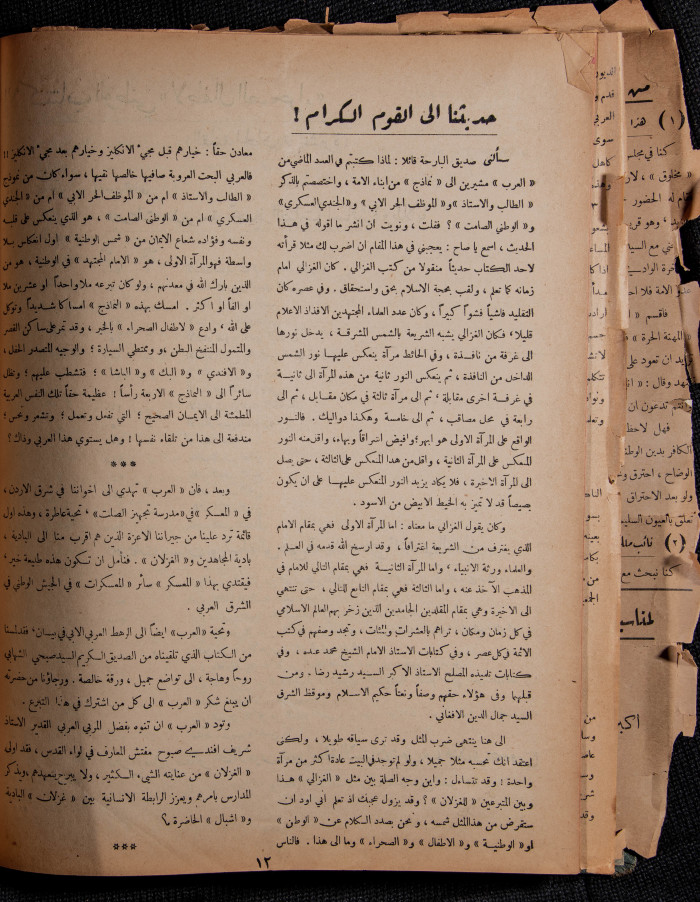 حديثنا الى القوم الكرام !
سألني صديق البارحة قائلا : لماذا كتبتم في العدد الماضي من
« العرب » مشيرين الى « نماذج » من ابناء الامة ، واختصصتم بالذكر
« الطالب والاستاذ » و« الموظف الحر الابي » و« الجندي العسكري »
و« الوطني الصامت » ؟ فقلت ، ونويت ان انشر ما اقوله في هذا
الحديث ، اسمع يا صاح : يعجبني في هذا المقام ان اضرب لك مثلا قرأته
لاحد الكتاب حديثاً منقولا من كتب الغزالي . كان الغزالي امام
زمانه كما تعلم ، ولقب بحجة الاسلام بحق واستحقاق . وفي عصره كان
التقليد فاشياً فشواً كبيراً ، وكان عدد العلماء المجتهدين الافذاذ الاعلام
قليلا ، فكان الغزالي يشبه الشريعة بالشمس المشرقة ، يدخل نورها
الى غرفة من نافذة ، وفي الحائط مرآة ينعكس عليها نور الشمس
الداخل من النافذة ، ثم ينعكس النور ثانية من هذه المرآة الى ثانية
في غرفة اخرى مقابلة ، ثم الى مرآة ثالثة في مكان مقابل ، ثم الى
رابعة في محل مصاقب ، ثم الى خامسة وهكذا دواليك . فالنور
الواقع على المرآة الاولى هو ابهر وافيض اشراقاً وبهاء، واقل منه النور
المنعكس على المرآة الثانية ، واقل من هذا المنعكس على الثالثة ، حتى يصل
الى المرآة الاخيرة ، فلا يكاد يزيد النور المنعكس عليها على ان يكون
بصيصاً قد لا تميز به الخيط الابيض من الاسود .
وكان يقول الغزالي ما معناه : اما المرآة الاولى فهي بمقام الامام
الذي يغترف من الشريعة اغترافاً ، وقد ارسخ الله قدمه في العلم .
والعلماء ورثة الانبياء . واما المرآة الثانية فهي بمقام التالي للامام في
المذهب الآخذ عنه ، واما الثالثة فهي بمقام التابع للتالي ، حتى تنتهي
الى الاخيرة وهي بمقام المقلدين الجامدين الذين زخر بهم العالم الاسلامي
في كل زمان ومكان ، تراهم بالعشرات والمئات ، وتجد وصفهم في كتب
الائمة في كل عصر ، وفي كتابات الاستاذ الامام الشيخ محمد عبده ، وفي
كتابات تلميذه المصلح الاستاذ الاكبر السيد رشيد رضا . ومن
قبلهما وفى هؤلاء حقهم وصفاً ونعتاً حكيم الاسلام وموقظ الشرق
السيد جمال الدين الافغاني .
الى هنا ينتهي ضرب المثل وقد ترى سياقه طويلا ، ولكني
اعتقد انك تحسبه مثلا جميلا ، ولو لم توجد في البيت عادة اكثر من مرآة
واحدة ! وقد تتساءل : واين وجه الصلة بين مثل « الغزالي » هذا
وبين المتبرعين « للغزلان » ؟ وقد يزول عجبك اذ تعلم اني اود ان
ستقرض من هذا المثل شمسه ، ونحن بصدد الكلام عن « الوطن »
او« الوطنية » و« الاطفال » و« الصحراء » وما الى هذا . فالناس
معادن حقاً : خيارهم قبل مجيء الانكليز وخيارهم بعد مجيء الانكليز !!
فالعربي البحت العروبة صافيها خالصها نقيها ، سواء كان من نموذج
« الطالب والاستاذ » ام من « الموظف الحر الابي » ام من « الجندي
العسكري » ام من « الوطني الصامت » ، هو الذي ينعكس على قلبه
ونفسه وفؤاده شعاع الايمان من « شمس الوطنية » اول انعكاس بلا
واسطة فهو المرآة الاولى ، هو « الامام المجتهد » في الوطنية ، هو من
الذين بارك الله في معدنهم ، ولو كان تبرعه ملا واحداً او عشرين ملا
او الفاً او اكثر . امسك بهذه « النماذج » امساكا شديداً وتوكل
على الله ، وادع « لاطفال الصحراء » بالخير ، وقد تمر على ساكن القصر
والمتمول المنتفخ البطن ،و وممتطي السيارة ؛ والوجيه المتصدر الحفل ،
و« الافندي » و« البك » و« الباشا » ؛ فتشطب عليهم ؛ وتظل
سائراً الى « النماذج » الاربعة رأساً : عظيمة حقاً تلك النفس العربية
المطمئنة الى الايمان الصحيح ؛ التي تفعل وتعمل ؛ وتشعر وتحس ؛
مندفعة الى هذا من تلقاء نفسها ! وهل يستوي هذا العربي وذاك ؟
***
وبعد ، فان « العرب » تهدي الى اخواننا في شرق الاردن ،
في « المعسكر » في « مدرسة تجهيز الصلت » ، تحية عاطرة ، وهذه اول
قائمة ترد علينا من جيراننا الاعزة الذين هم اقرب منا الى البادية ،
بادية المجاهدين و« الغزلان » . فنأمل ان تكون هذه طليعة خير ،
فيقتدي بهذا « المعسكر » سائر « المعسكرات » في الجيش الوطني في
الشرق العربي .
وتحية « العرب » ايضاً الى الرهط العربي الابي في بيسان ، فقد لمسنا
من الكتاب الذي تلقيناه من الصديق الكريم السيد صبحي الشهابي
روحاً وهاجة ، الى تواضع جميل ، ورقة خالصة . ورجاؤنا من حضرته
ان يبلغ شكر « العرب » الى كل من اشترك في هذا التبرع .
وتود « العرب » ان تنوه بفضل المربي العربي القدير الاستاذ
شريف افندي صبوح مفتش المعارف في لواء القدس ، فقد اولى
« الغزلان » من عنايته الشيء الكثير ، ولا يبرح يتعهدهم ، ويذكر
المدارس بامرهم ويعزز الرابطة الانسانية بين « غزلان » البادية
و« اشبال » الحاضرة ؟
***
١٢
(١) هذا
(٢) نائب
كنا نبحث مع
لمناسب
اكبر